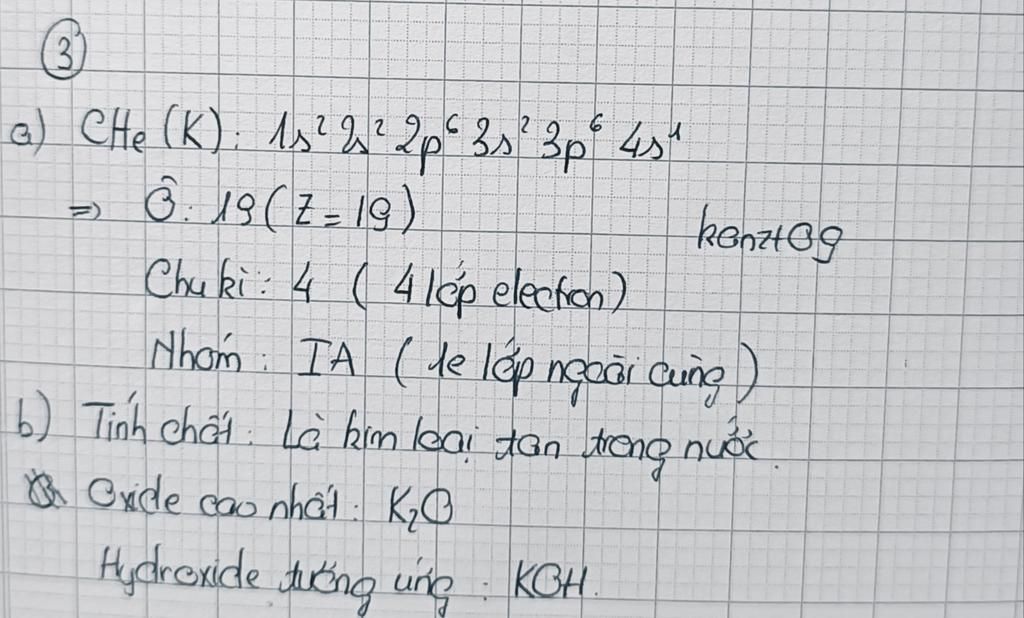 ③
a) CHe (K): 1s² 2s² 2p⁶ 3s² 3p⁶ 4s¹
=> Ô: 19 (Z = 19)
kenzt09
Chu kì: 4 ( 4 lớp electron)
Nhóm: IA ( 1e lớp ngoài cùng )
b) Tính chất: Là kim loại tan trong nước.
Oxide cao nhất: K₂O
Hydroxide tương ứng: KOH.